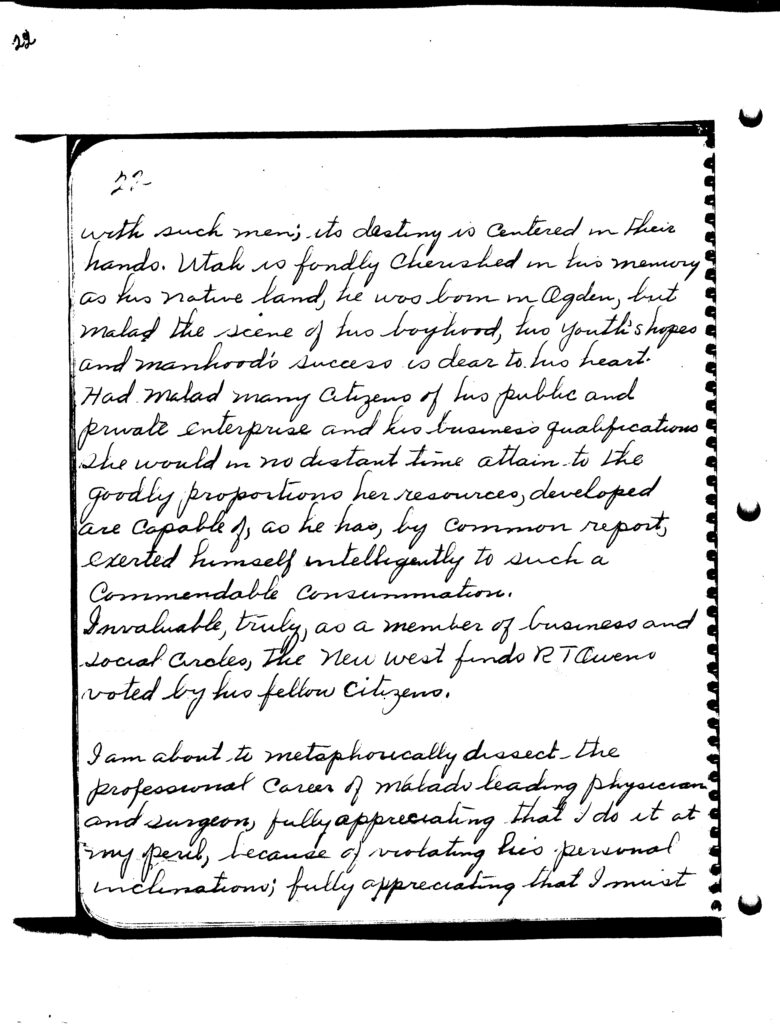 22
22
with such men; its destiny is centered in their
hands. Utah is fondly cherished in his memory
as his native land, he was born in Ogden, but
Malad the scene of his boyhood, his youth's hopes
and manhood's success is dear to his heart.
Had Malad many citizens of his public and
private enterprise and his business qualifications
she would in no distant time attain to the
goodly proportions her resources, developed
are capable of, as he has, by common report,
exerted himself intelligently to such a
commendable consummation.
Invaluable, truly, as a member of business and
social circles, the New West finds R T Owens
voted by his fellow citizens.
I am about to metaphorically dissect the
professional career of Malads leading physician
and surgeon, fully appreciating that I do it at
my peril, because of violating his personal
inclinations; fully appreciating that I must